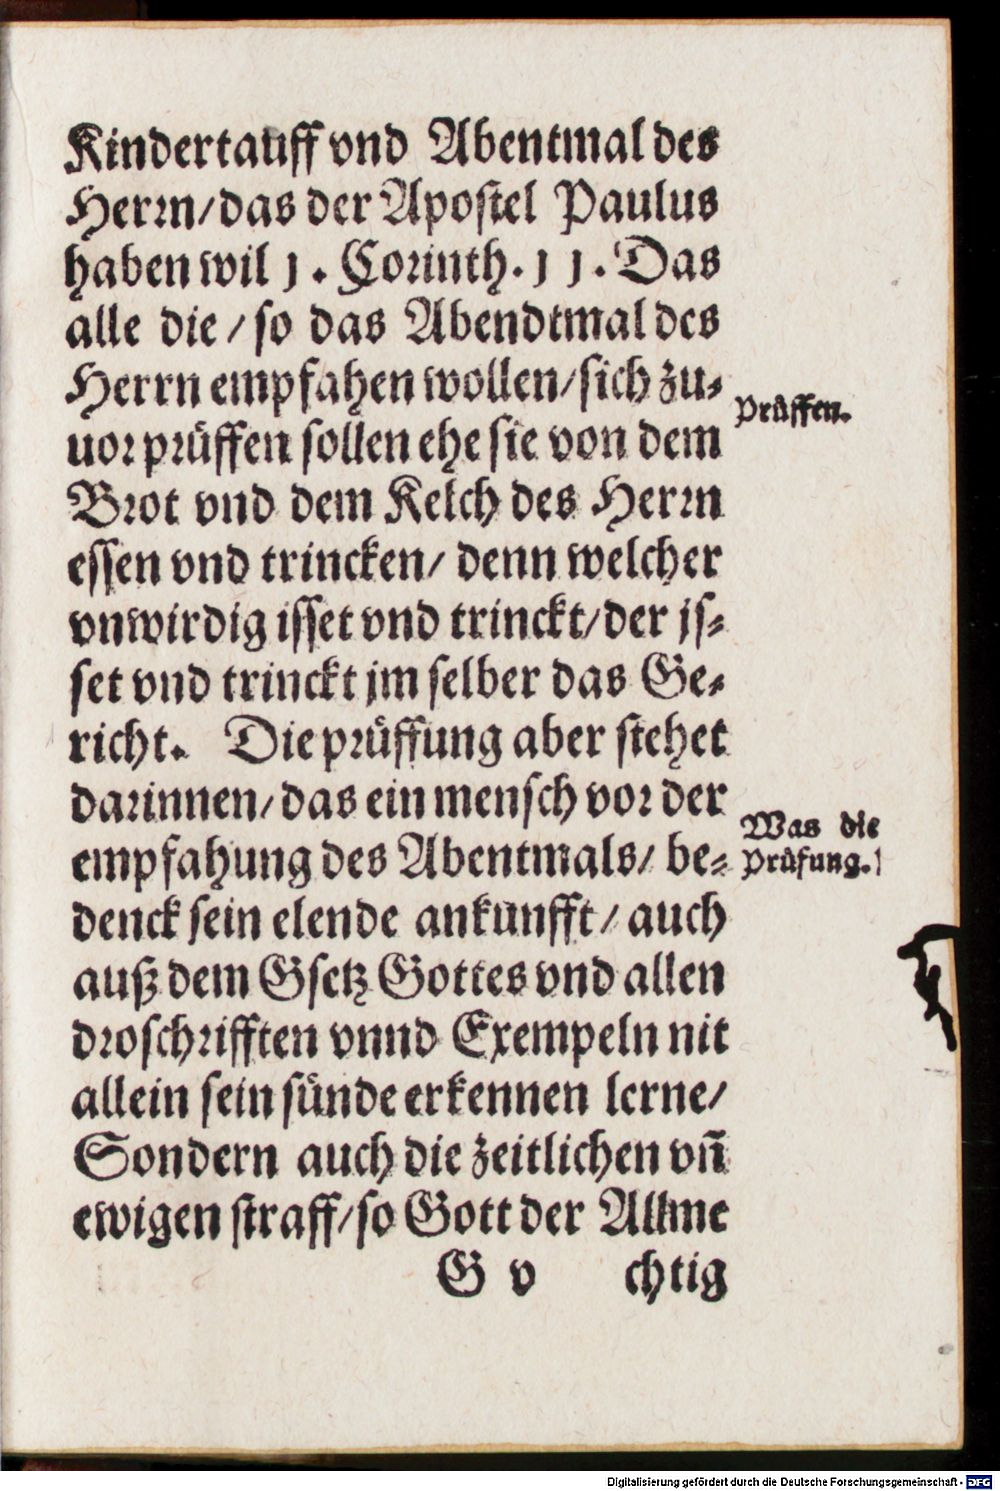 Kindertauff vnd Abentmal des
Herrn/das der Apostel Paulus
haben wil 1. Corinth. 11. Das
alle die/so das Abendtmal des
Herrn empfahen wollen/sich zu-
uor prüffen sollen ehe sie von dem
Brot vnd dem Kelch des Herrn
essen vnd trincken/ denn welcher
vnwirdig isset vnd trinckt/der js-
set vnd trinckt jm selber das Ge-
richt. Die prüffung aber stehet
darinnen/das ein mensch vor der
empfahung des Abentmals/ be-
denck sein elende ankunfft/auch
auß dem Gsetz Gottes vnd allen
droschrifften vnnd Exempeln nit
allein sein sünde erkennen lerne/
Sondern auch die zeitlichen vñ
ewigen straff/so Gott der Allme
G v chtig
Prüffen.
Was die
Prüfung.
Digitalisierung gefördert durch die Deutsche Forschungsgemeinschaft - DFG